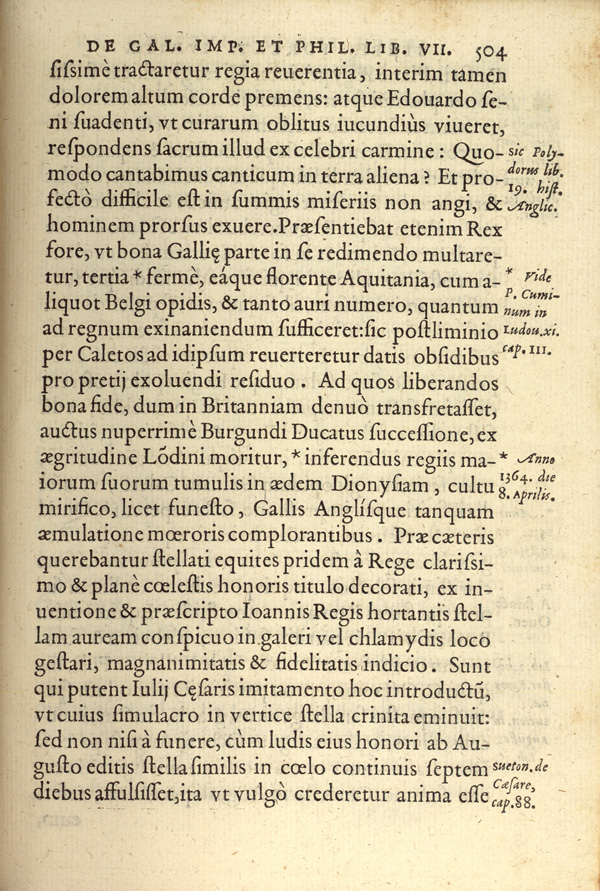 DE GAL. IMP. ET PHIL. LIB. VII. 504
ſiſsimè tractaretur regia reuerentia, interim tamen
dolorem altum corde premens: atque Edouardo ſe-
ni ſuadenti, vt curarum oblitus iucundiùs viueret,
reſpondens ſacrum illud ex celebri carmine: Quo-
modo cantabimus canticum in terra aliena? Et pro-
fectò difficile eſt in ſummis miſeriis non angi, &
hominem prorſus exuere. Præſentiebat etenim Rex
fore, vt bona Gallię parte in ſe redimendo multare-
tur, tertia * fermè, eáque florente Aquitania, cum a-
liquot Belgi opidis, & tanto auri numero, quantum
ad regnum exinaniendum ſufficeret: ſic poſtliminio
per Caletos ad idipſum reuerteretur datis obſidibus
pro pretij exoluendi reſiduo. Ad quos liberandos
bona fide, dum in Britanniam denuò transfretaſſet,
auctus nuperrimè Burgundi Ducatus ſucceſſione, ex
ægritudine Lōdini moritur, * inferendus regiis ma-
iorum ſuorum tumulis in ædem Dionyſiam, cultu
mirifico, licet funeſto, Gallis Anglíſque tanquam
æmulatione mœroris complorantibus. Præ cæteris
querebantur ſtellati equites pridem à Rege clariſsi-
mo & planè cœleſtis honoris titulo decorati, ex in-
uentione & præſcripto Ioannis Regis hortantis ſtel-
lam auream conſpicuo in galeri vel chlamydis loco
geſtari, magnanimitatis & fidelitatis indicio. Sunt
qui putent Iulij Cęſaris imitamento hoc introductū,
vt cuius ſimulacro in vertice ſtella crinita eminuit:
ſed non niſi à funere, cùm ludis eius honori ab Au-
guſto editis ſtella ſimilis in cœlo continuis ſeptem
diebus affulſiſſet, ita vt vulgò crederetur anima eſſe
sic Poly-
dorus lib.
19. hiſt.
Anglic.
* Vide
P. Cumi-
num in
Ludou. xi.
cap. 111.
* Anno
1364. die
8. Aprilis.
Sueton. de
Cæſare,
cap. 88.